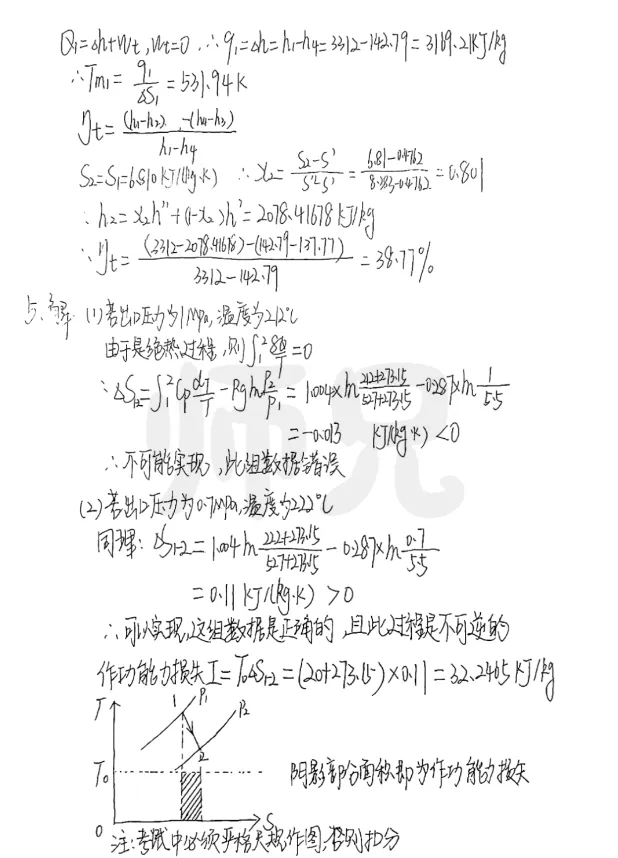 Q₁=Δh+Wt, Wt=0 ∴q₁=Δh=h₁-h₄=3312-142.79=3169.21kJ/kg
∴Tm₁=q₁/ΔS₁=531.94K
ηt=((h₁-h₂)-(h₄-h₃))/(h₁-h₄)
S₂=S₁=6.810kJ/(kg·K) ∴x₂=(S₂-S')/(S''-S')=(6.81-0.4762)/(8.383-0.4762)=0.801
∴h₂=x₂h''+(1-x₂)h'=2078.41678kJ/kg
∴ηt=((3312-2078.41678)-(142.79-137.77))/(3312-142.79)=38.77%
5、解 (1)若出口压力为1Mpa,温度为212℃
由于是绝热过程,则∫₁²δQ/T=0
∴ΔS₁₂=∫₁²Cp dT/T-Rg ln P₂/P₁=1.004×ln (212+273.15)/(527+273.15)-0.287×ln 1/5.5
=-0.013 kJ/(kg·K)<0
∴不可能实现,此组数据错误
(2)若出口压力为0.7Mpa,温度为222℃
同理:ΔS₁-₂=1.004ln (222+273.15)/(527+273.15)-0.287×ln 0.7/5.5
=0.11kJ/(kg·K)>0
∴可以实现,这组数据是正确的,且此过程是不可逆的
作功能力损失I=T₀ΔS₁-₂=(20+273.15)×0.11=32.2465kJ/kg
T 1 P₁ P₂
2
T₀ 阴影部分面积即为作功能力损失
0 S
注:考试中必须严格尺规作图,否则扣分
师兄